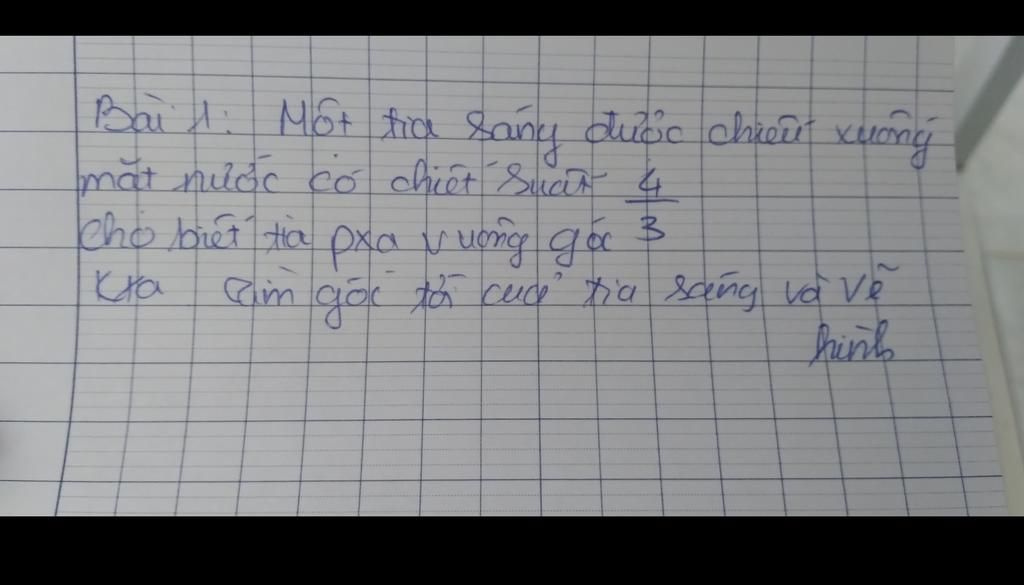 Bài 1: Một tia sáng được chiếu xuống
mặt nước có chiết suất 4/3
cho biết tia pxạ vuông góc
kxạ tìm góc tới của tia sáng và vẽ
hình